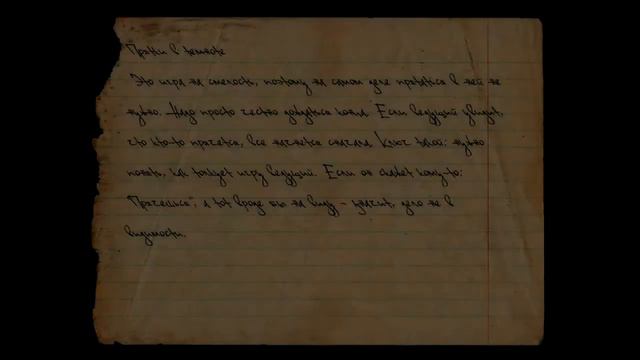 Прятки в темноте
Это игра на смелость, поэтому на самом деле прятаться в ней не
нужно. Надо просто честно дождаться конца. Если ведущий увидит,
что кто-то прячется, все начнется сначала. Ключ такой: нужно
понять, как толкует игру ведущий. Если он скажет кому-то:
"Прячешься", а тот вроде бы на виду – значит, дело не в
видимости.